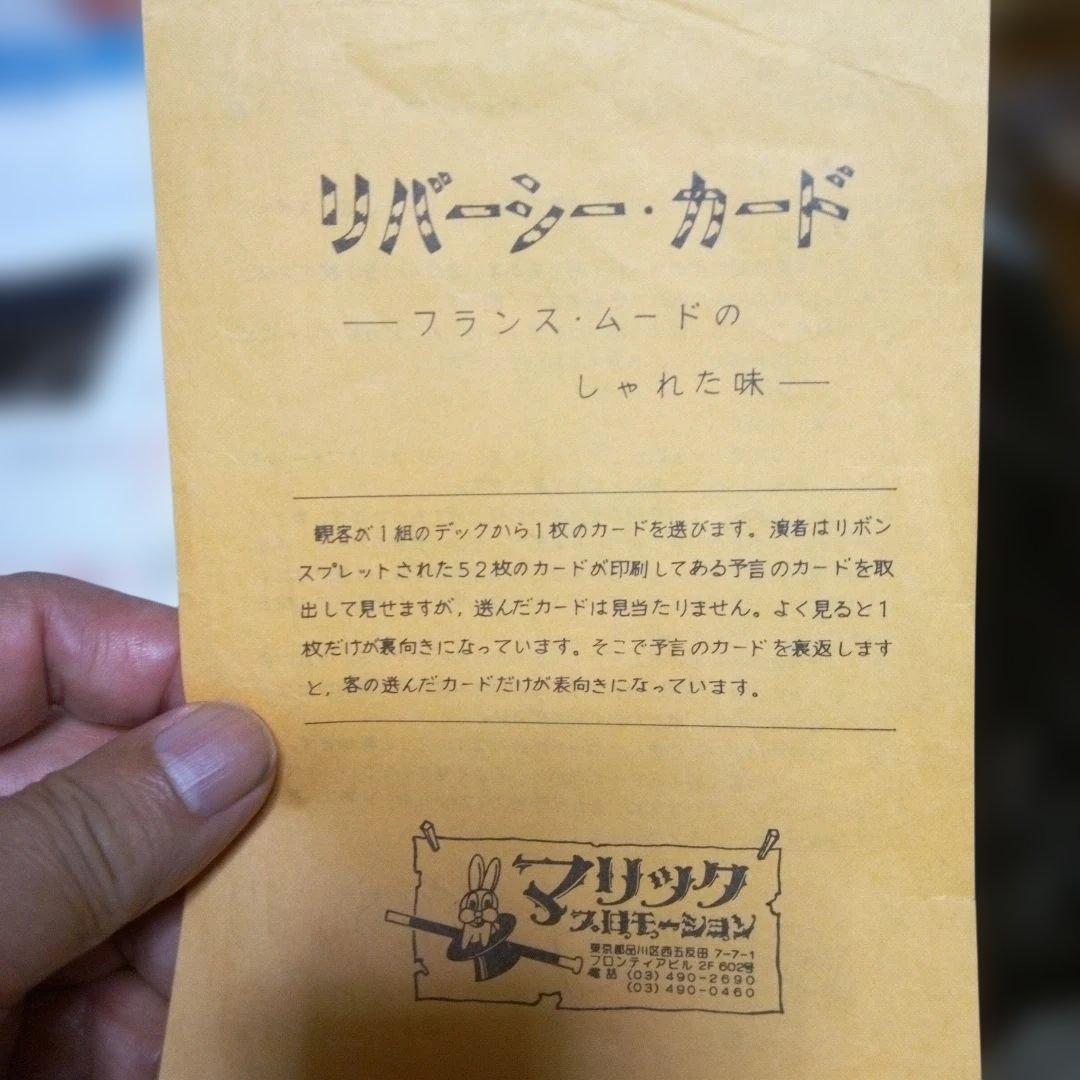 リバーシー・カード
――フランス・ムードの
しゃれた味――
観客が1組のデックから1枚のカードを選びます。演者はリボン
スプレットされた52枚のカードが印刷してある予言のカードを取
出して見せますが，選んだカードは見当たりません。よく見ると1
枚だけが裏向きになっています。そこで予言のカードを裏返します
と，客の選んだカードだけが表向きになっています。
マリック
プロモーション
東京都品川区西五反田 7-7-1
フロンティアビル 2F 602号
電話 (03) 490-2690
(03) 490-0460